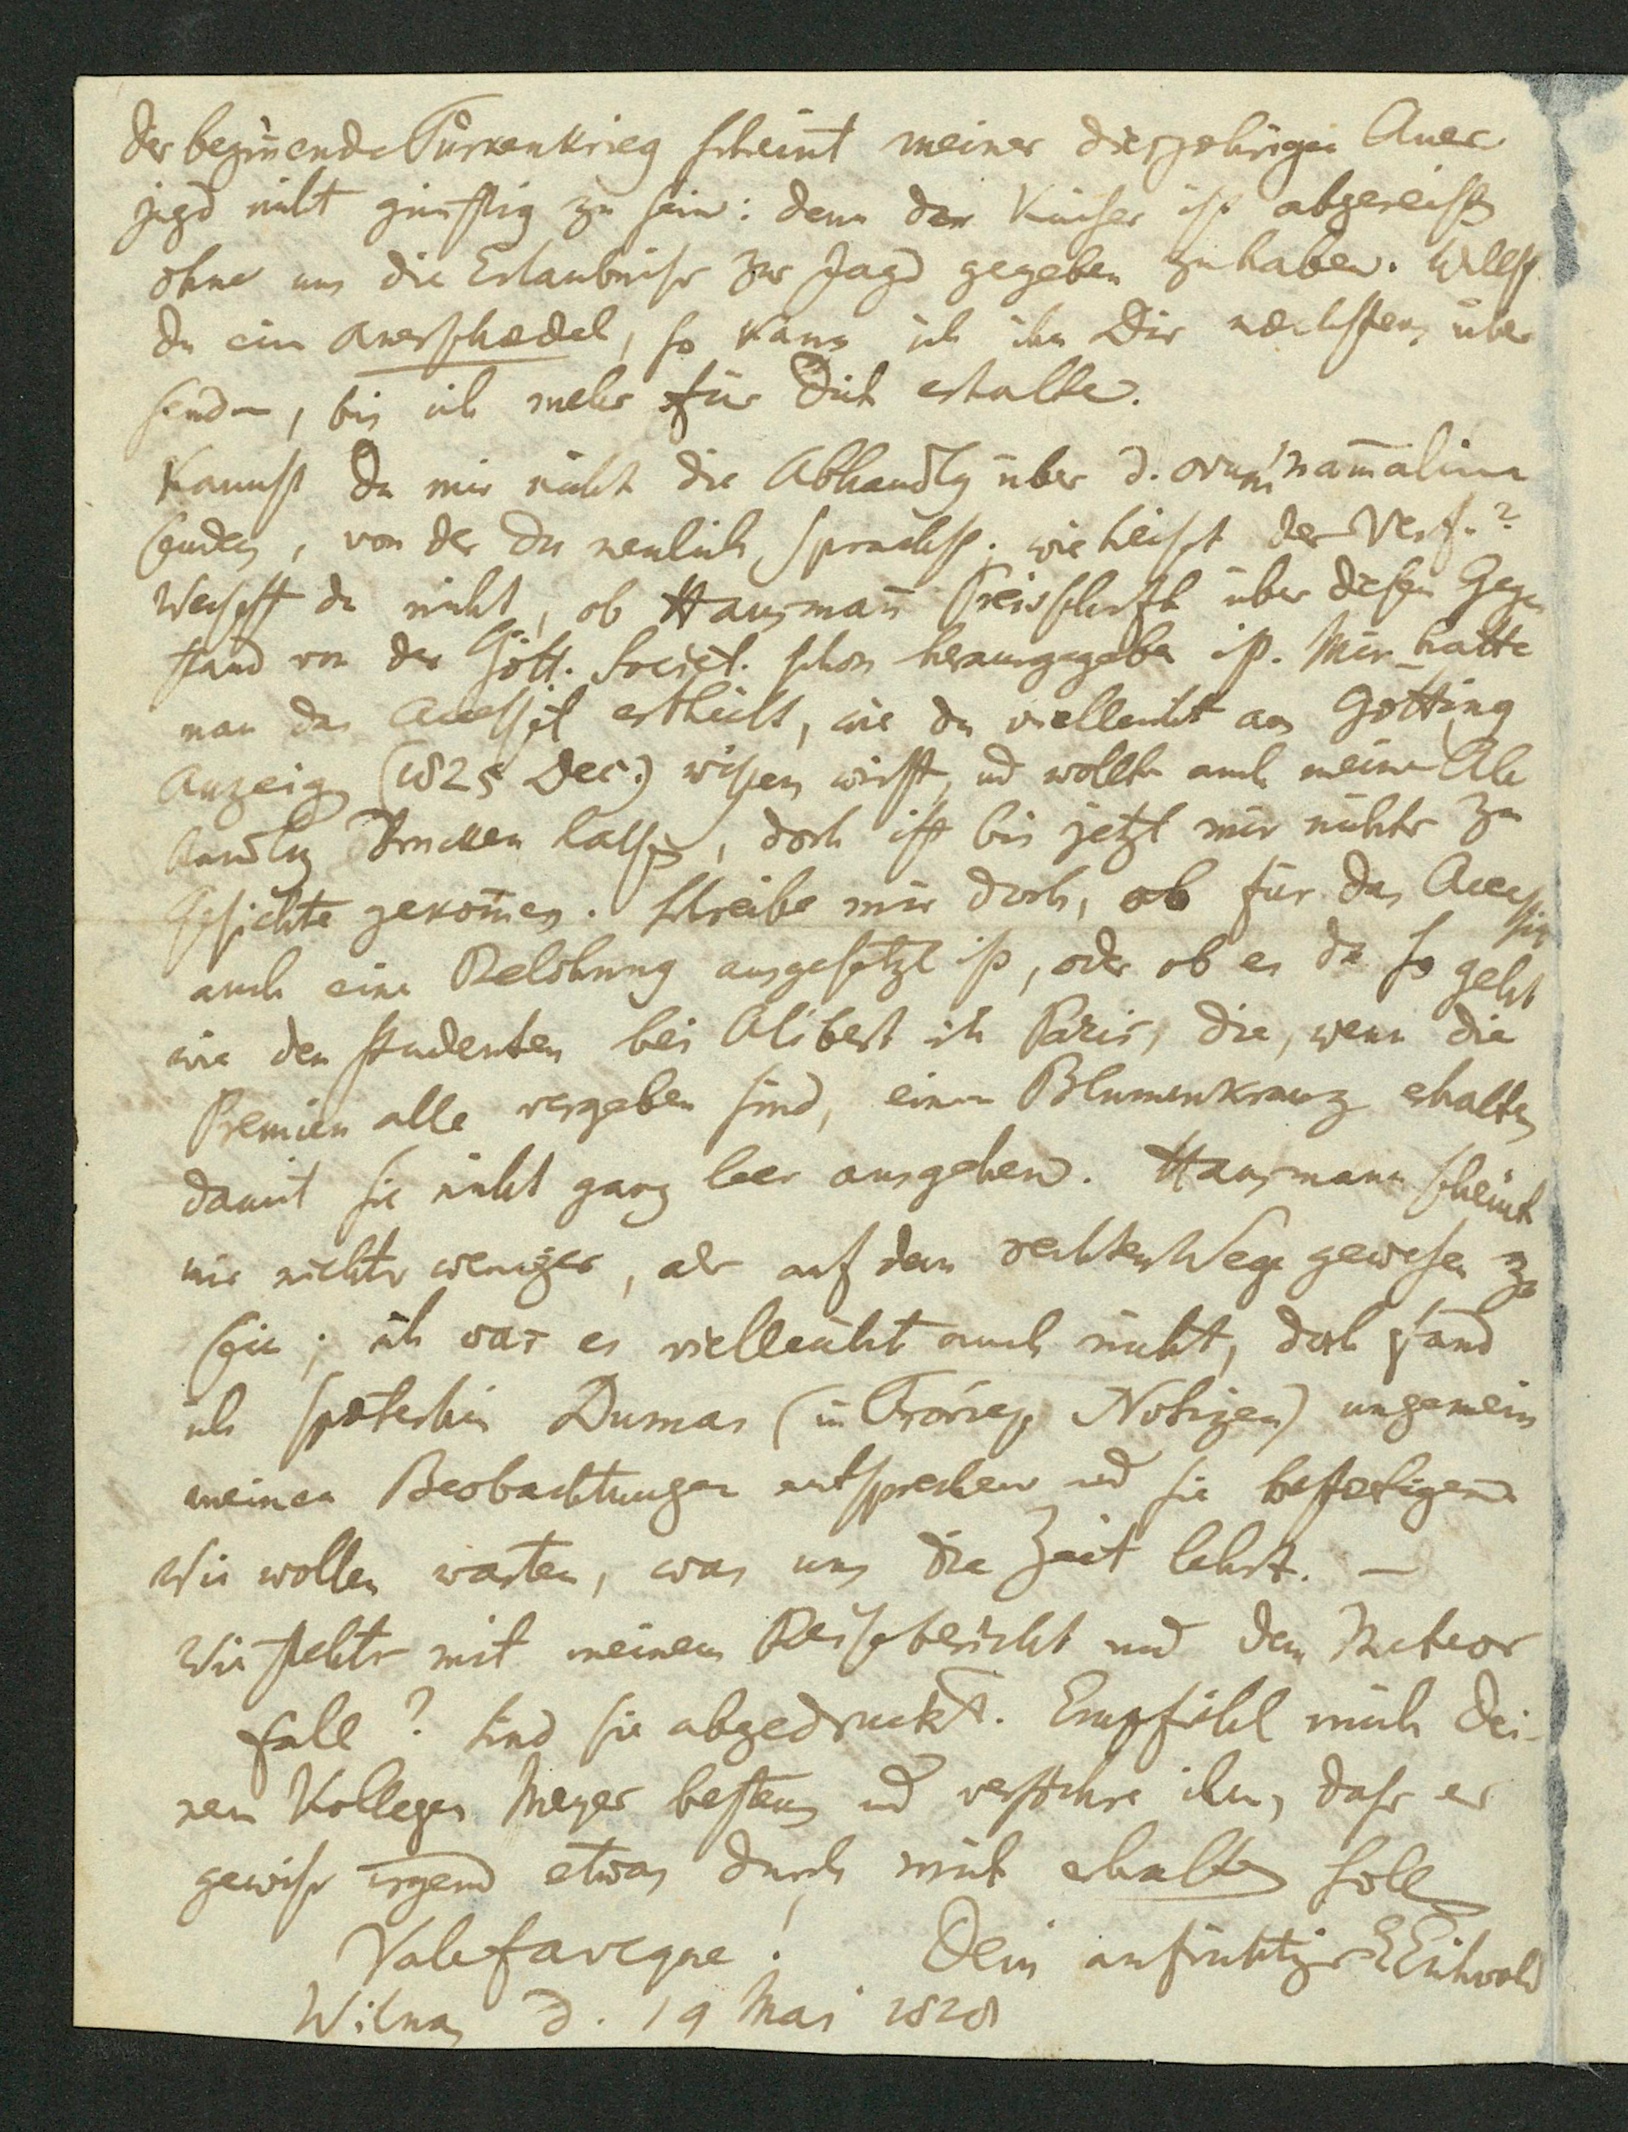 Der begiñende Türkenkrieg scheint meiner diesjährigen Auer
jagd nicht günstig zu sein: denn der Kaiser ist abgereist
ohne uns die Erlaubniss zur Jagd gegeben zu haben. Willst
du ein Auerschædel, so kann ich ihn Dir næchstens über
senden, bis ich mehr für Dich erhalte.
Kannst Du mir nicht die Abhandlg über d. ovum mam̃alium
senden, von der du neulich sprachst; wie heisst der Verf.?
Weisst du nicht, ob Hausmañ Preisschrift über diesen Gegen
stand von der Gött. Societ. schon herausgegeben ist. Mir hatte
man das Accessit ertheilt, wie du vielleicht aus Götting
Anzeig (1825 Dec.) wissen wirst, und wollte auch meine Ab
handlg drucken lassen, doch ist bis jetzt mir nichts zu
Gesichte gekom̃en. Schreibe mir doch, ob für das Accessit
auch eine Belohnung ausgesetzt ist, oder ob es da so geht
wie den Studenten bei Alibert in Paris, die, wenn die
Premien alle vergeben sind, einen Blumenkranz erhalten
damit sie nicht ganz leer ausgehen. Hausmann scheint
mir nichts weniger, als auf dem rechten Wege gewesen zu
sein; ich war es vielleicht auch nicht, doch fand
ich spæterhin Dumas (in Froriep Notizen) ungemein
meinen Beobachtungen entsprechend und sie bestætigend
Wir wollen warten, was uns die Zeit lehrt. –
Wie stehts mit meinem Reisebericht und dem Meteor
fall? Sind sie abgedruckt. Empfiehl mich Dei-
nem Kollegen Meyer bestens und versichre ihm, dass er
gewiss irgend etwas durch mich erhalten soll
Vale faveque! Dein aufrichtiger EEichwald
Wilna d. 19 Mai 1828